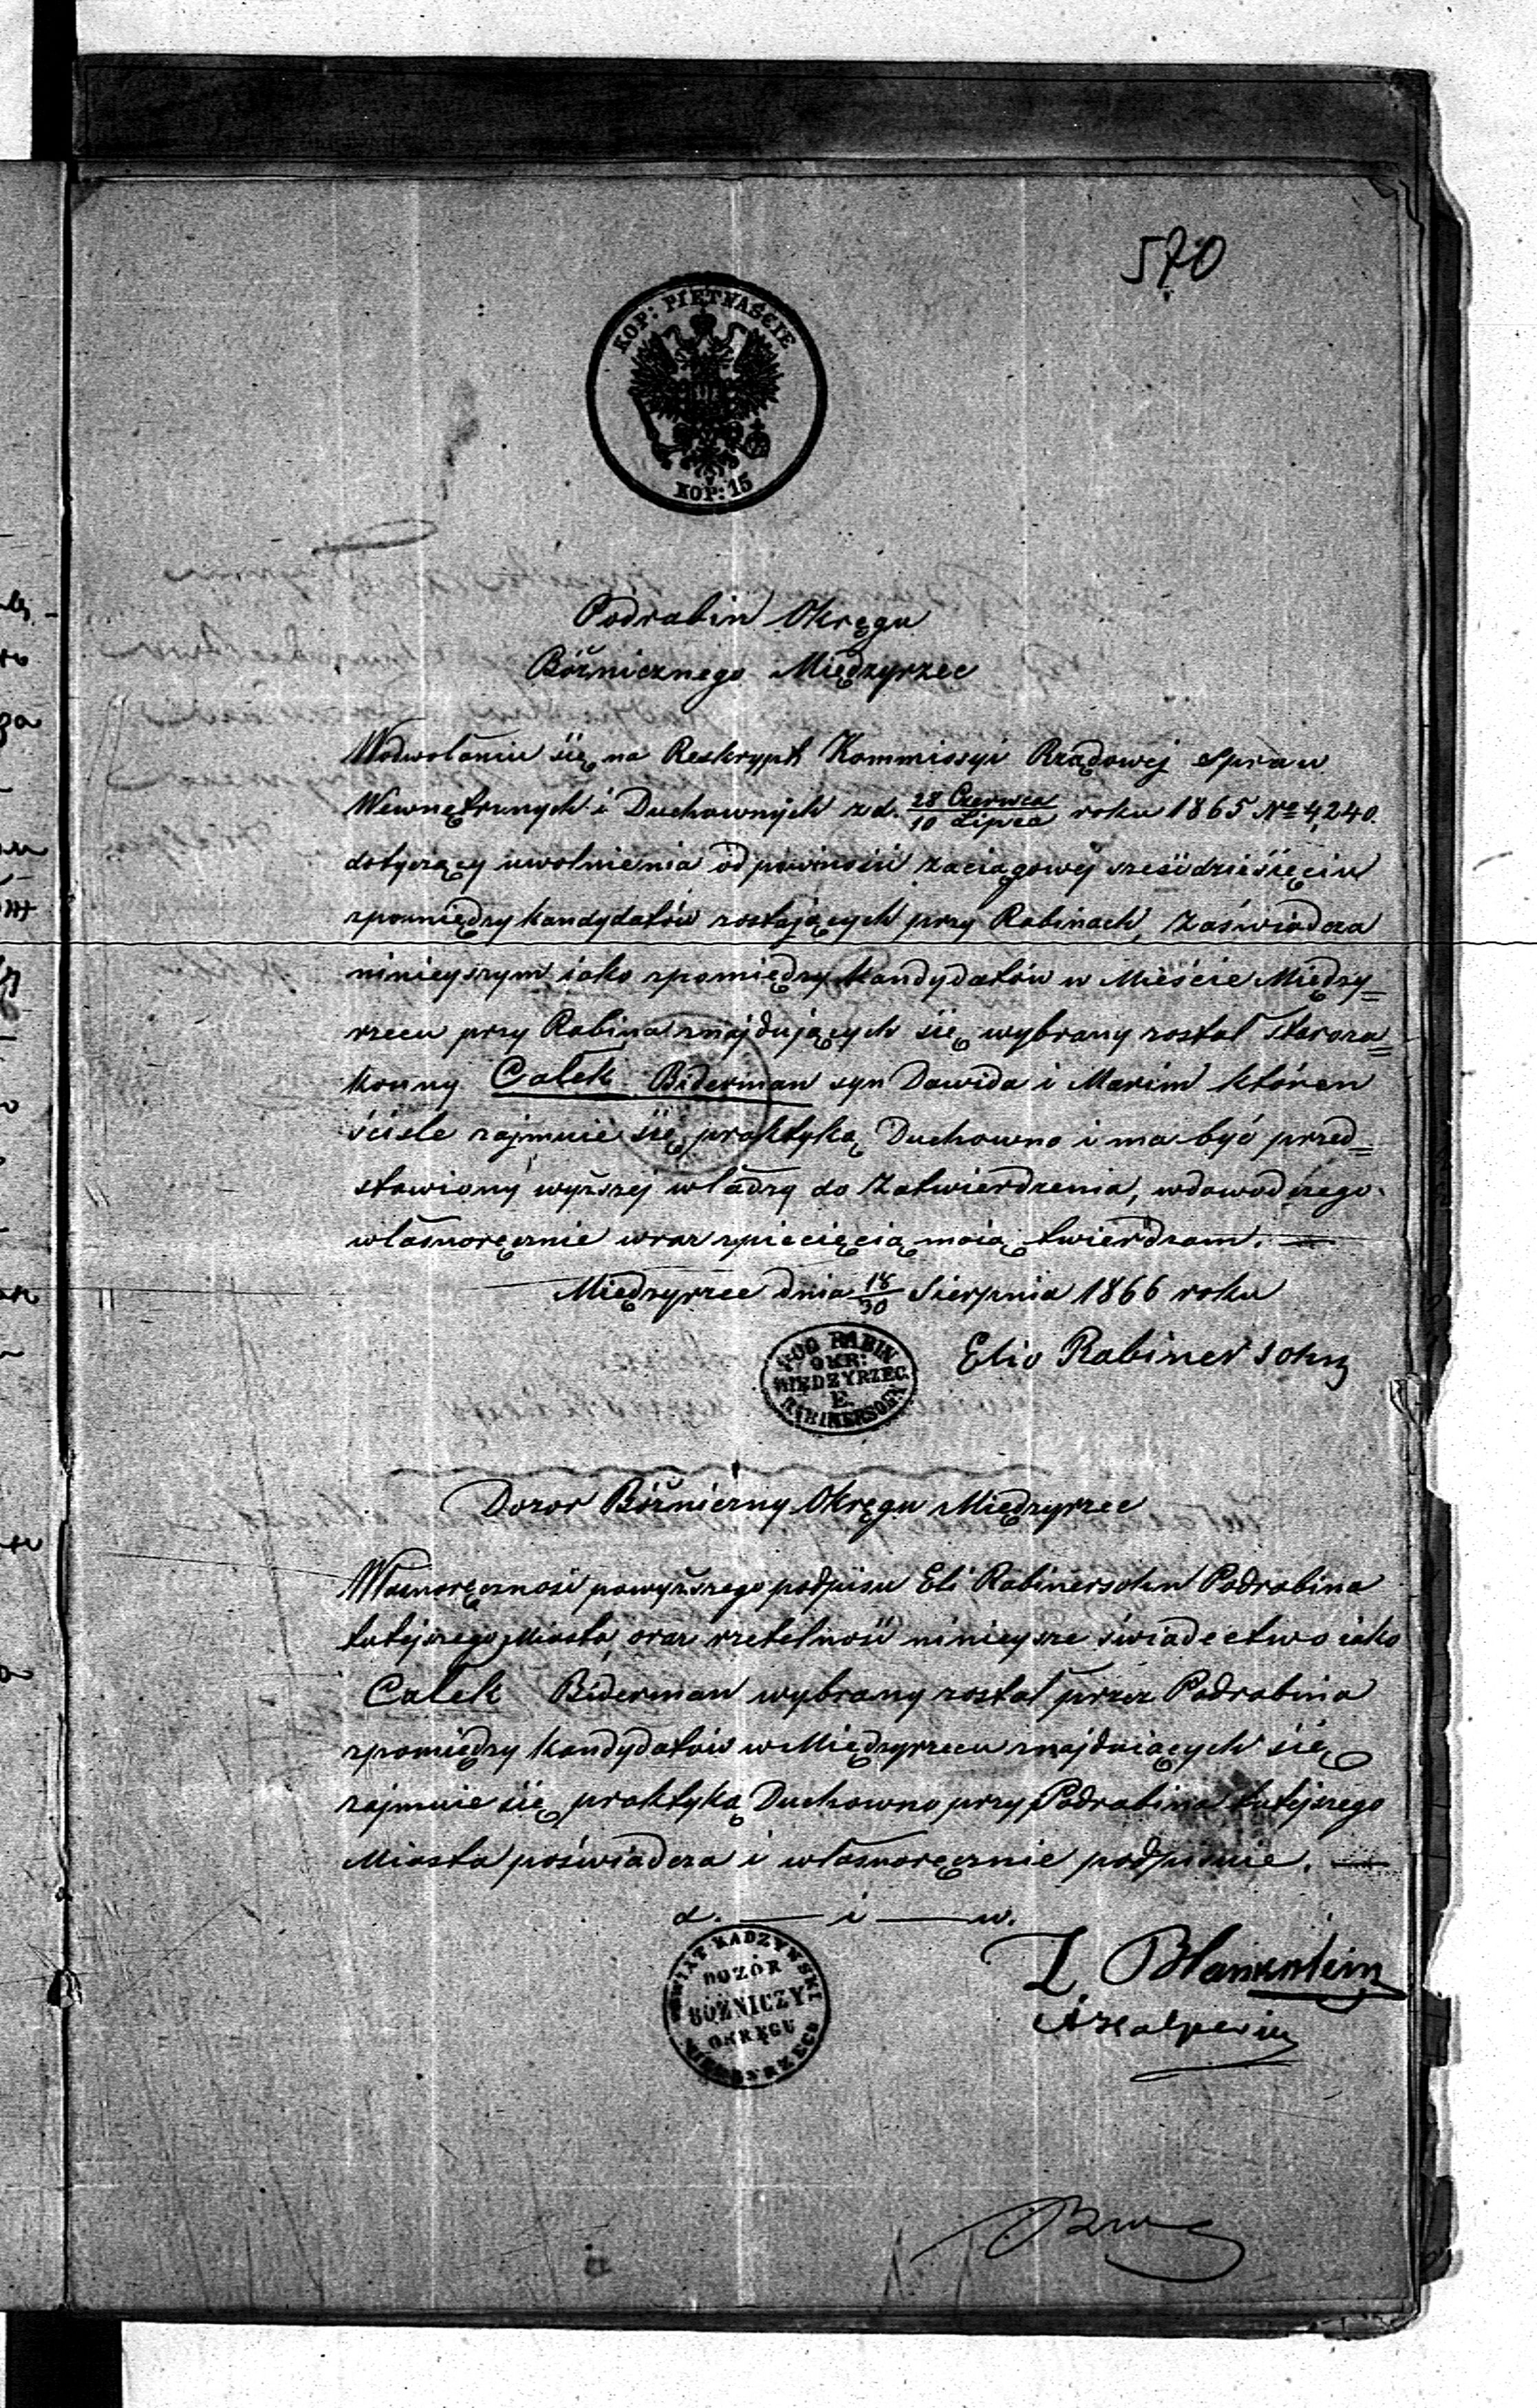 570
KOP: PIĘTNAŚCIE
KOP: 15
Podrabin Okręgu
Bóżnicznego Międzyrzec
Wodwołaniu się na Reskrypt Kommissyi Rządowej Spraw
Wewnętrznych i Duchownych z d. 28 Czerwca / 10 Lipca roku 1865 No 4,240.
dotyczący uwolnienia od powinność zaciągowej sześćdziesięciu
zpomiędzy kandydatów zostających przy Rabinach, Zaświadcza
niniejszym iako zpomiędzy kandydatów w Mieście Między=
rzecu przy Rabina znajdujących się wybrany został Staroza=
konny Całek Biderman syn Dawida i Marim któren
ściśle zajmuie się praktyką Duchowno i ma być przed=
stawiony wyższej władzy do Zatwierdzenia, wdowód czego
własnoręcznie wraz zpiecięcią moią twierdzam. —
Międzyrzec dnia 18/30 Sierpnia 1866 roku
POD RABIN
OKR:
MIĘDZYRZEC.
E.
RABINERSOHN
Elio Rabinersohn
Dozor Bóżniczny Okręgu Międzyrzec
Własnoręczność powyższego podpisu Eli Rabinersohn Podrabina
tutejszego Miasta, oraz rzetelność niniejsze świadectwo iako
Całek Biderman wybrany został przez Podrabina
zpomiędzy kandydatów w Międzyrzecu znajduiących się
zajmuie się praktyką Duchowno przy Podrabina tutejszego
Miasta poświadcza i własnoręcznie podpisuie. —
d. — i — w.
POWIAT RADZYŃSKI
DOZÓR
BÓŻNICZY
OKRĘGU
MIĘDZYRZEC